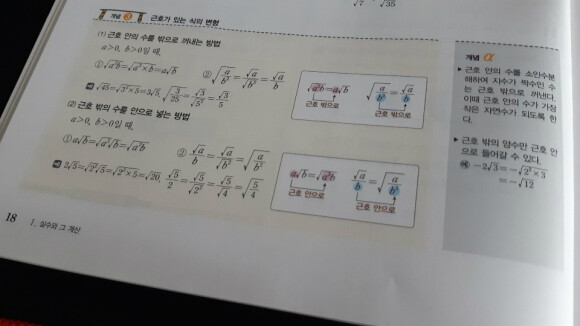 √7 √35
개념 3 근호가 있는 식의 변형
(1) 근호 안의 수를 밖으로 꺼내는 방법
a>0, b>0일 때,
① √a²b=√a²×b=a√b ② √a/b²=√a/√b²=√a/b
➡ √45=√3²×5=3√5, √3/25=√3/√5²=√3/5
√a²b=a√b √a/b²=√a/b
근호 밖으로 근호 밖으로
(2) 근호 밖의 수를 안으로 넣는 방법
a>0, b>0일 때,
① a√b=√a²√b=√a²b ② √a/b=√a/√b²=√a/b²
➡ 2√5=√2²√5=√2²×5=√20, √5/2=√5/√2²=√5/√4=√5/4
a√b=√a²b √a/b=√a/b²
근호 안으로 근호 안으로
개념 α
▶ 근호 안의 수를 소인수분
해하여 지수가 짝수인 수
는 근호 밖으로 꺼낸다.
이때 근호 안의 수가 가장
작은 자연수가 되도록 한
다.
▶ 근호 밖의 양수만 근호 안
으로 들어갈 수 있다.
예 -2√3=-√2²×3
=-√12
18 1. 실수와 그 계산